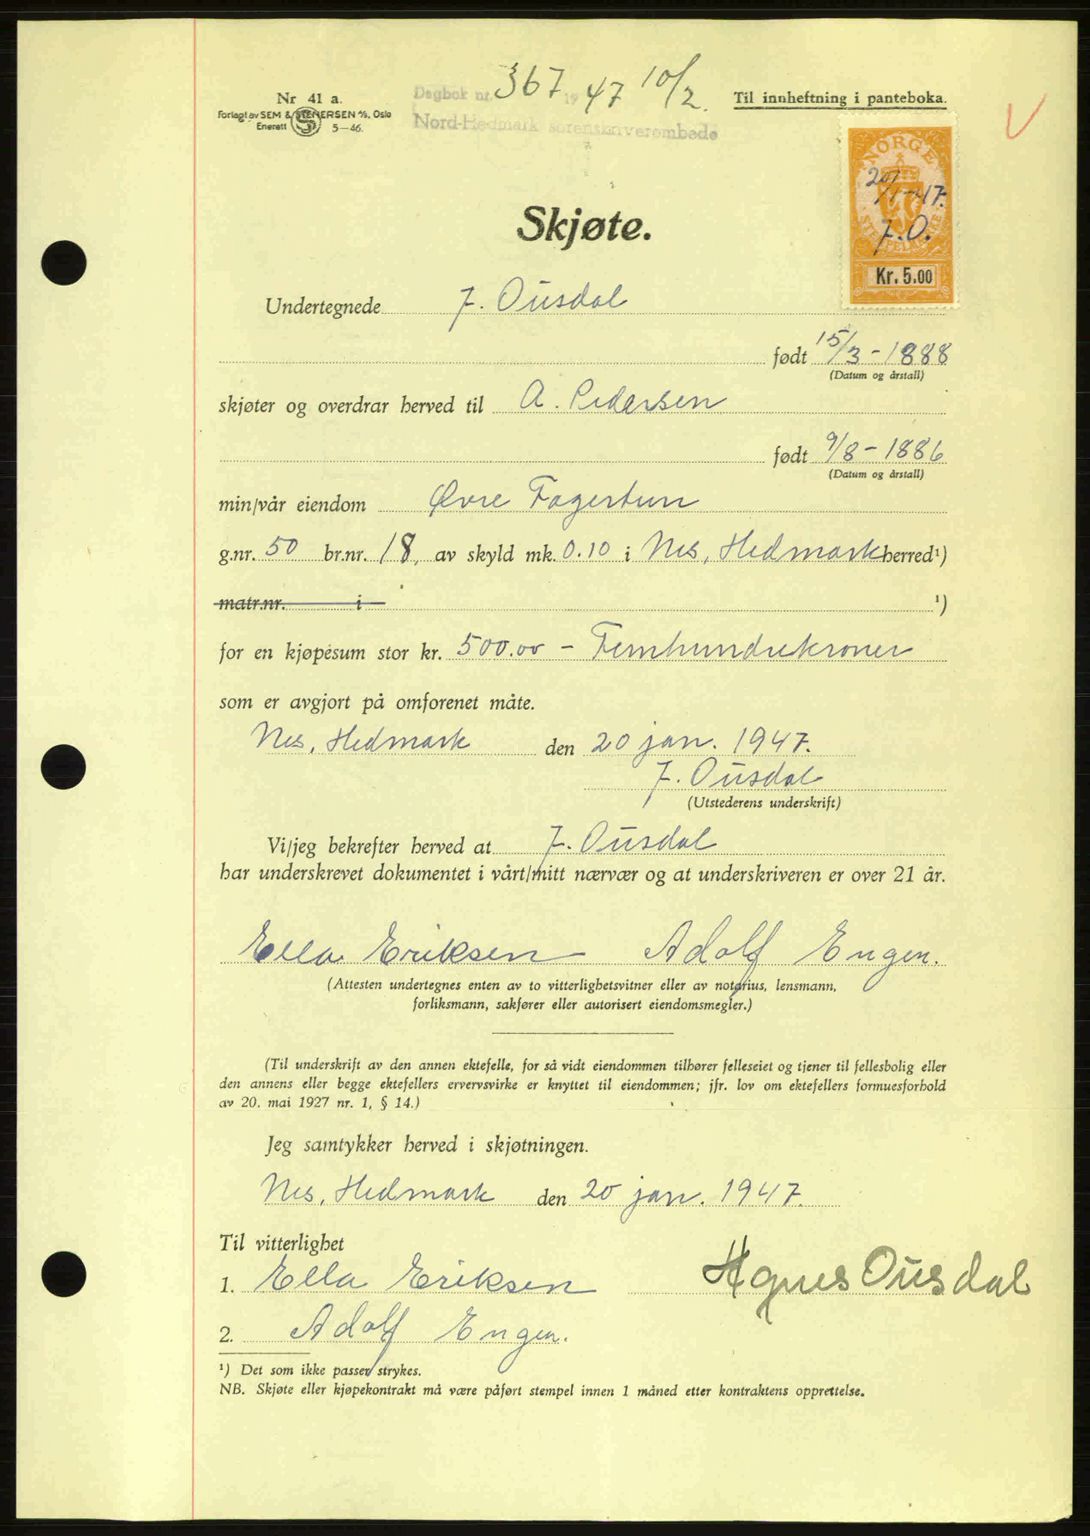 Nr 41 a.
Forlagt av SEM & STENERSEN A/S, Oslo
Enerett 5-46.
Dagbok nr. 367 19 47 10/2.
Nord-Hedmark sorenskriverembede
Til innheftning i panteboka.
NORGE
20/1-47.
J.O.
STEMPELMERKE
Kr. 5.00
Skjøte.
Undertegnede J. Ousdal
født 15/3-1888
(Datum og årstall)
skjøter og overdrar herved til A. Pedersen
født 9/8-1886
(Datum og årstall)
min/vår eiendom Øvre Fagertun
g.nr. 50 br.nr. 18, av skyld mk. 0.10 i Nes, Hedmark herred¹)
matr.nr. i ¹)
for en kjøpesum stor kr. 500.00 - Femhundrekroner
som er avgjort på omforenet måte.
Nes, Hedmark den 20 jan. 1947.
J. Ousdal
(Utstederens underskrift)
Vi/jeg bekrefter herved at J. Ousdal
har underskrevet dokumentet i vårt/mitt nærvær og at underskriveren er over 21 år.
Ella Eriksen Adolf Engen.
(Attesten undertegnes enten av to vitterlighetsvitner eller av notarius, lensmann,
forliksmann, sakfører eller autorisert eiendomsmegler.)
(Til underskrift av den annen ektefelle, for så vidt eiendommen tilhører felleseiet og tjener til fellesbolig eller
den annens eller begge ektefellers ervervsvirke er knyttet til eiendommen; jfr. lov om ektefellers formuesforhold
av 20. mai 1927 nr. 1, § 14.)
Jeg samtykker herved i skjøtningen.
Nes, Hedmark den 20 jan. 1947.
Til vitterlighet
1. Ella Eriksen Agnes Ousdal
2. Adolf Engen.
¹) Det som ikke passer strykes.
NB. Skjøte eller kjøpekontrakt må være påført stempel innen 1 måned etter kontraktens opprettelse.